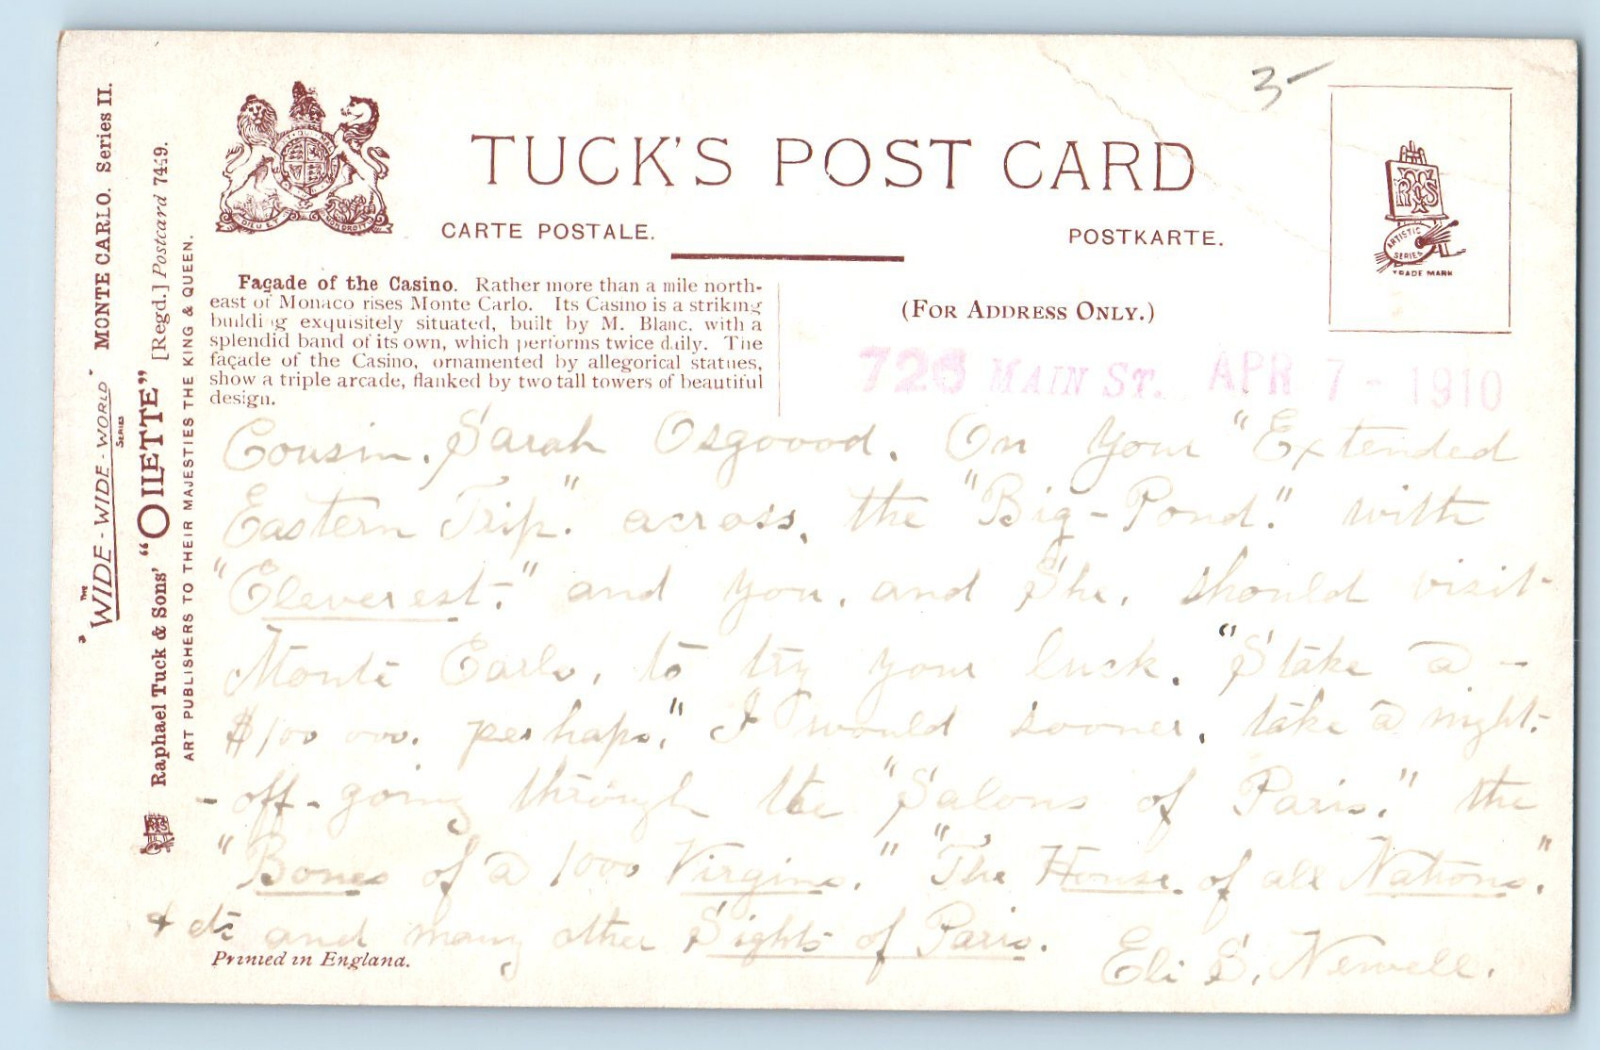 "THE
WIDE-WIDE-WORLD"
SERIES
MONTE CARLO. Series II.
Raphael Tuck & Sons' "OILETTE" [Regd.] Postcard 7449.
ART PUBLISHERS TO THEIR MAJESTIES THE KING & QUEEN.
TUCK'S POST CARD
CARTE POSTALE.
POSTKARTE.
3-
ARTISTIC
SERIES
TRADE MARK
Façade of the Casino. Rather more than a mile north-
east of Monaco rises Monte Carlo. Its Casino is a striking
buildi g exquisitely situated, built by M. Blanc. with a
splendid band of its own, which performs twice daily. The
façade of the Casino, ornamented by allegorical statues,
show a triple arcade, flanked by two tall towers of beautiful
design.
(FOR ADDRESS ONLY.)
726 MAIN ST. APR 7 - 1910
Cousin. Sarah Osgoood. On Your "Extended
Eastern Trip." across, the "Big-Pond." with
"Cleverest." and you, and She, should visit
Monte Carlo, to try your luck. "Stake a -
$100 000. perhaps." I would sooner, take a night-
- off - going through the "Salons of Paris." the
"Bones of a 1000 Virgins." "The House of all Nations."
& etc and many other Sights of Paris.
Eli S. Newell.
Printed in England.